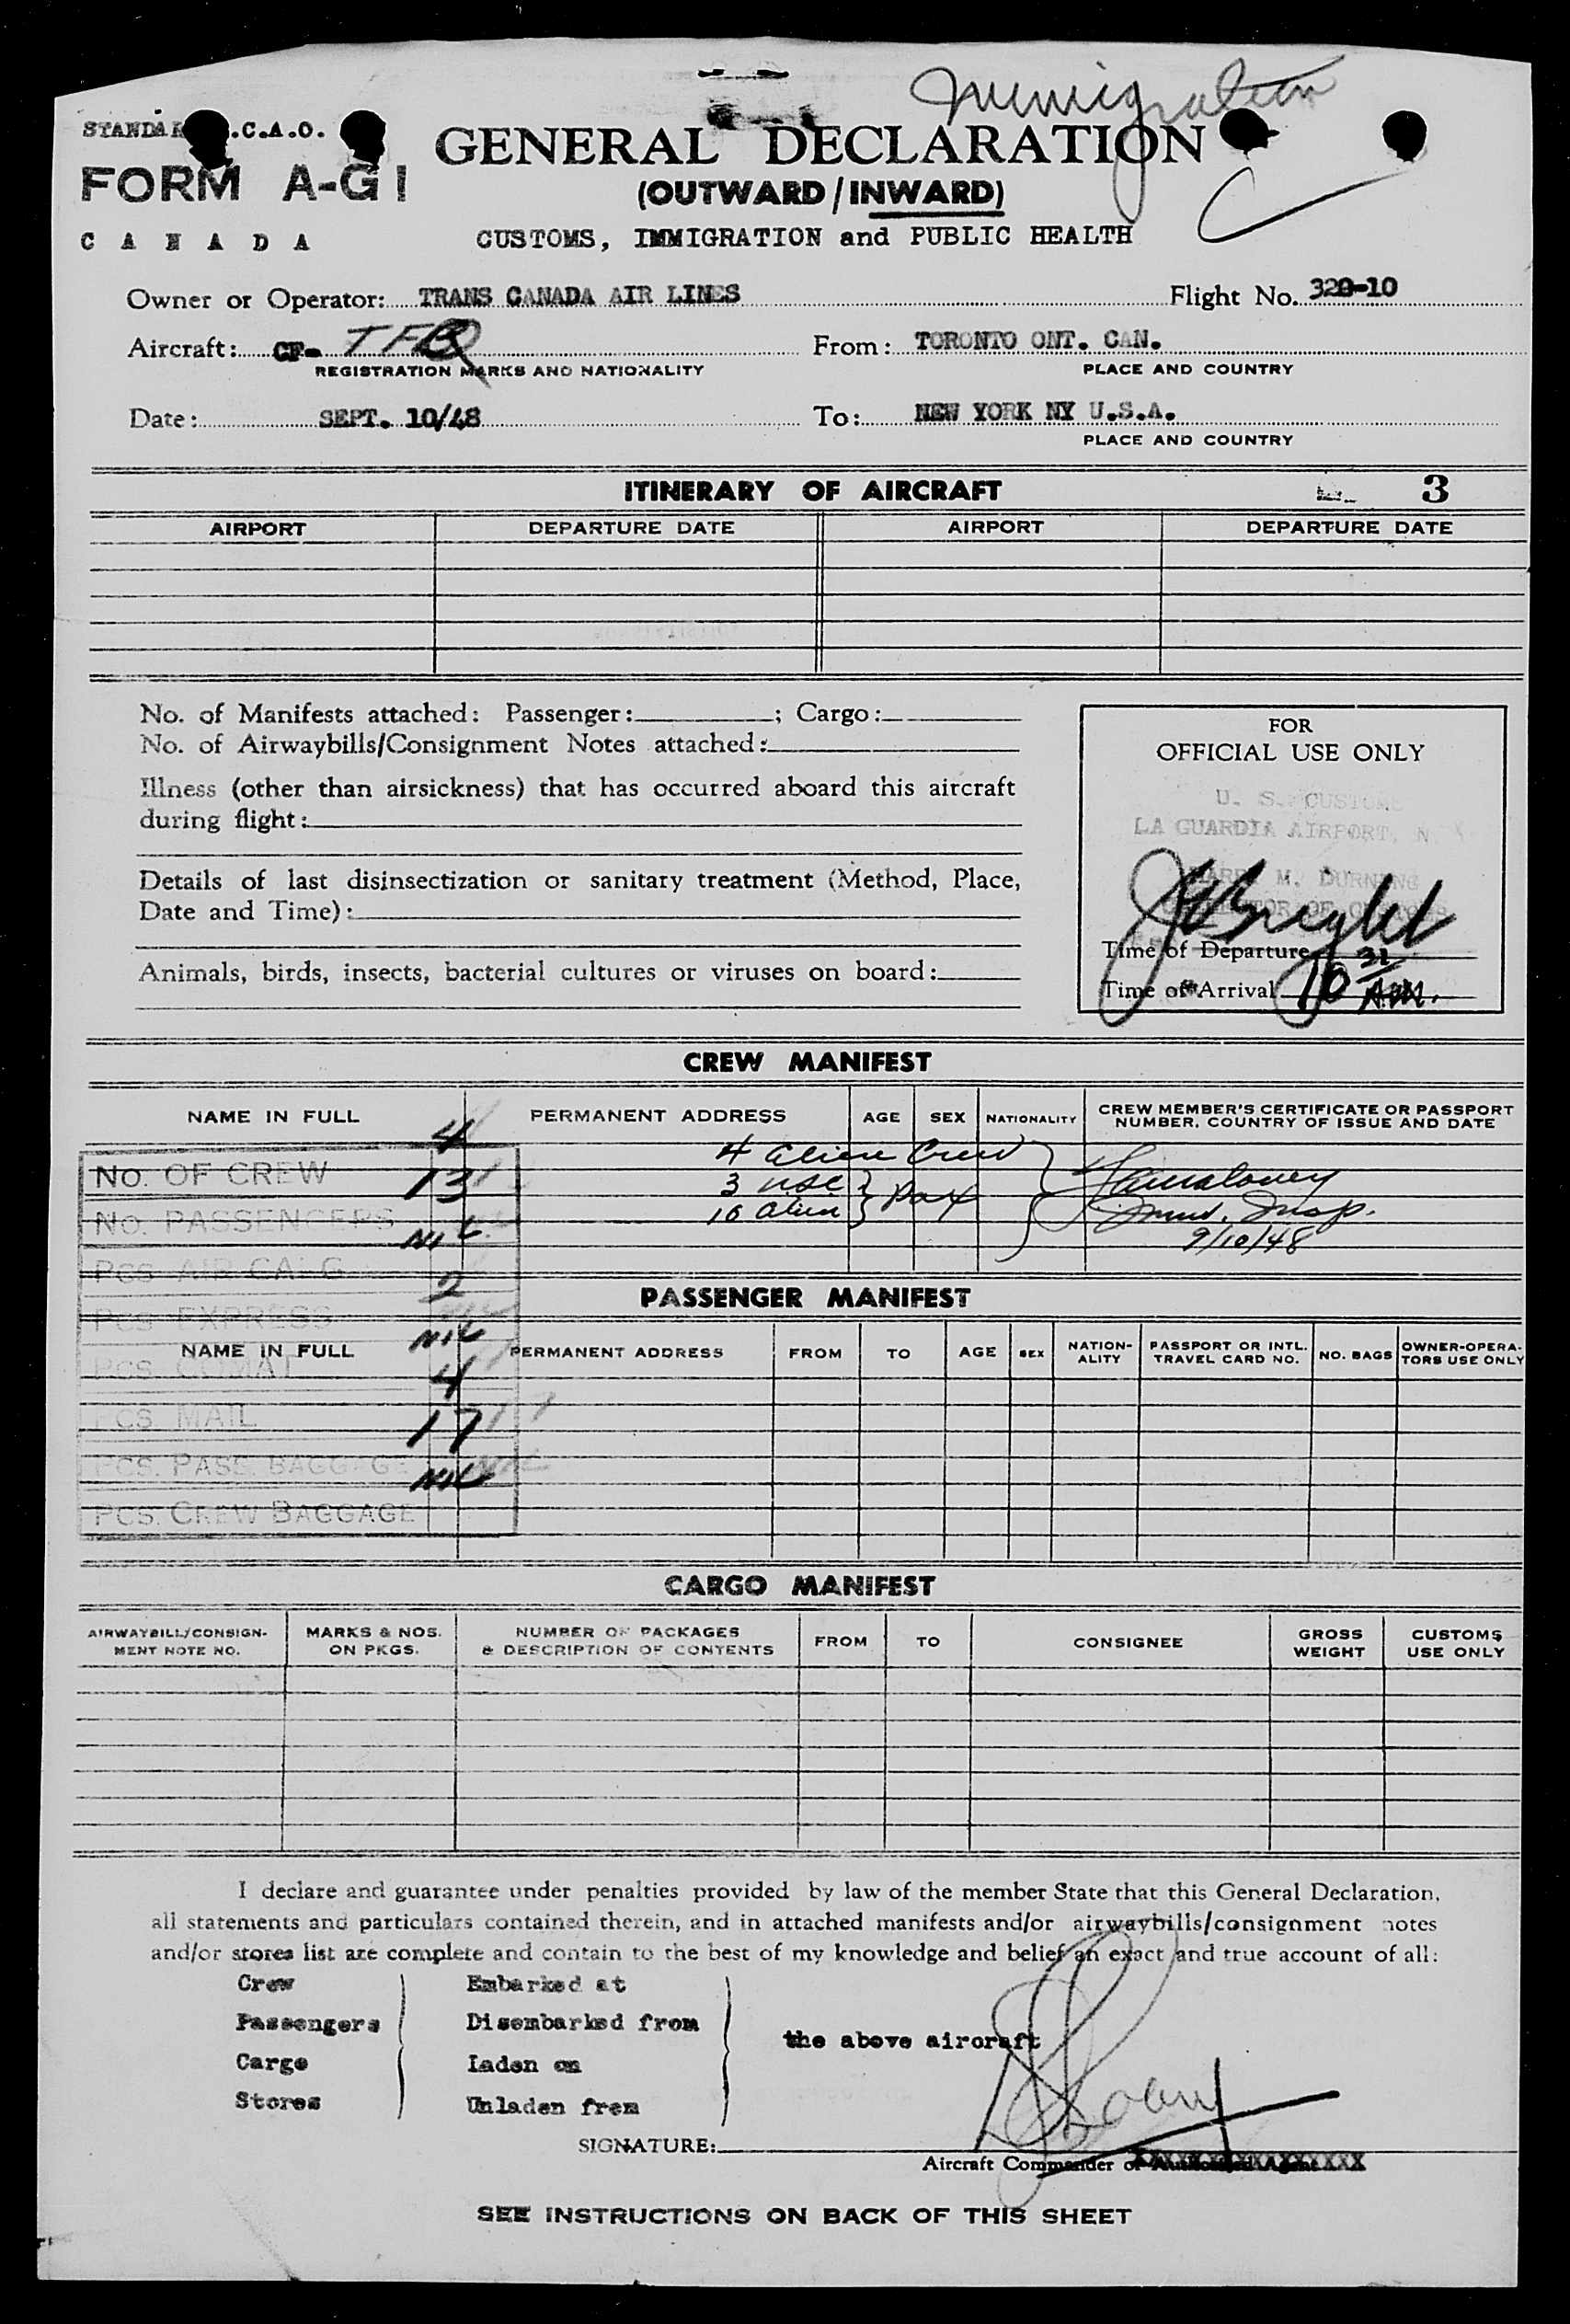 Immigration
STANDARD I.C.A.O.
FORM A-G1
CANADA
GENERAL DECLARATION
(OUTWARD/INWARD)
CUSTOMS, IMMIGRATION and PUBLIC HEALTH
Owner or Operator: TRANS CANADA AIR LINES Flight No. 320-10
Aircraft: CF- From: TORONTO ONT. CAN.
REGISTRATION MARKS AND NATIONALITY PLACE AND COUNTRY
Date: SEPT. 10/48 To: NEW YORK NY U.S.A.
PLACE AND COUNTRY
ITINERARY OF AIRCRAFT 3
AIRPORT DEPARTURE DATE AIRPORT DEPARTURE DATE
No. of Manifests attached: Passenger: ; Cargo:
No. of Airwaybills/Consignment Notes attached:
Illness (other than airsickness) that has occurred aboard this aircraft
during flight:
Details of last disinsectization or sanitary treatment (Method, Place,
Date and Time):
Animals, birds, insects, bacterial cultures or viruses on board:
FOR
OFFICIAL USE ONLY
U. S. CUSTOMS
LA GUARDIA AIRPORT, N Y
HARRY M. DURNING
COLLECTOR OF CUSTOMS
Time of Departure
Time of Arrival 10 31 A.M.
CREW MANIFEST
NAME IN FULL PERMANENT ADDRESS AGE SEX NATIONALITY CREW MEMBER'S CERTIFICATE OR PASSPORT
NUMBER, COUNTRY OF ISSUE AND DATE
4 alien Crew
3 USC
10 alien } Pax
Imm. Insp.
9/10/48
No. OF CREW 4
No. PASSENGERS 13
Pcs. AIR CARGO NIL
Pcs. EXPRESS 2
Pcs. COMAT NIL
Pcs. MAIL 4
Pcs. PASS. BAGGAGE 17
Pcs. CREW BAGGAGE NIL
PASSENGER MANIFEST
NAME IN FULL PERMANENT ADDRESS FROM TO AGE SEX NATION-
ALITY PASSPORT OR INTL.
TRAVEL CARD NO. NO. BAGS OWNER-OPERA-
TORS USE ONLY
CARGO MANIFEST
AIRWAYBILL/CONSIGN-
MENT NOTE NO. MARKS & NOS.
ON PKGS. NUMBER OF PACKAGES
& DESCRIPTION OF CONTENTS FROM TO CONSIGNEE GROSS
WEIGHT CUSTOMS
USE ONLY
I declare and guarantee under penalties provided by law of the member State that this General Declaration,
all statements and particulars contained therein, and in attached manifests and/or airwaybills/consignment notes
and/or stores list are complete and contain to the best of my knowledge and belief an exact and true account of all:
Crew Embarked at
Passengers Disembarked from
the above aircraft
Cargo Laden on
Stores Unladen from
SIGNATURE:
Aircraft Commander or Authorized Agent
SEE INSTRUCTIONS ON BACK OF THIS SHEET